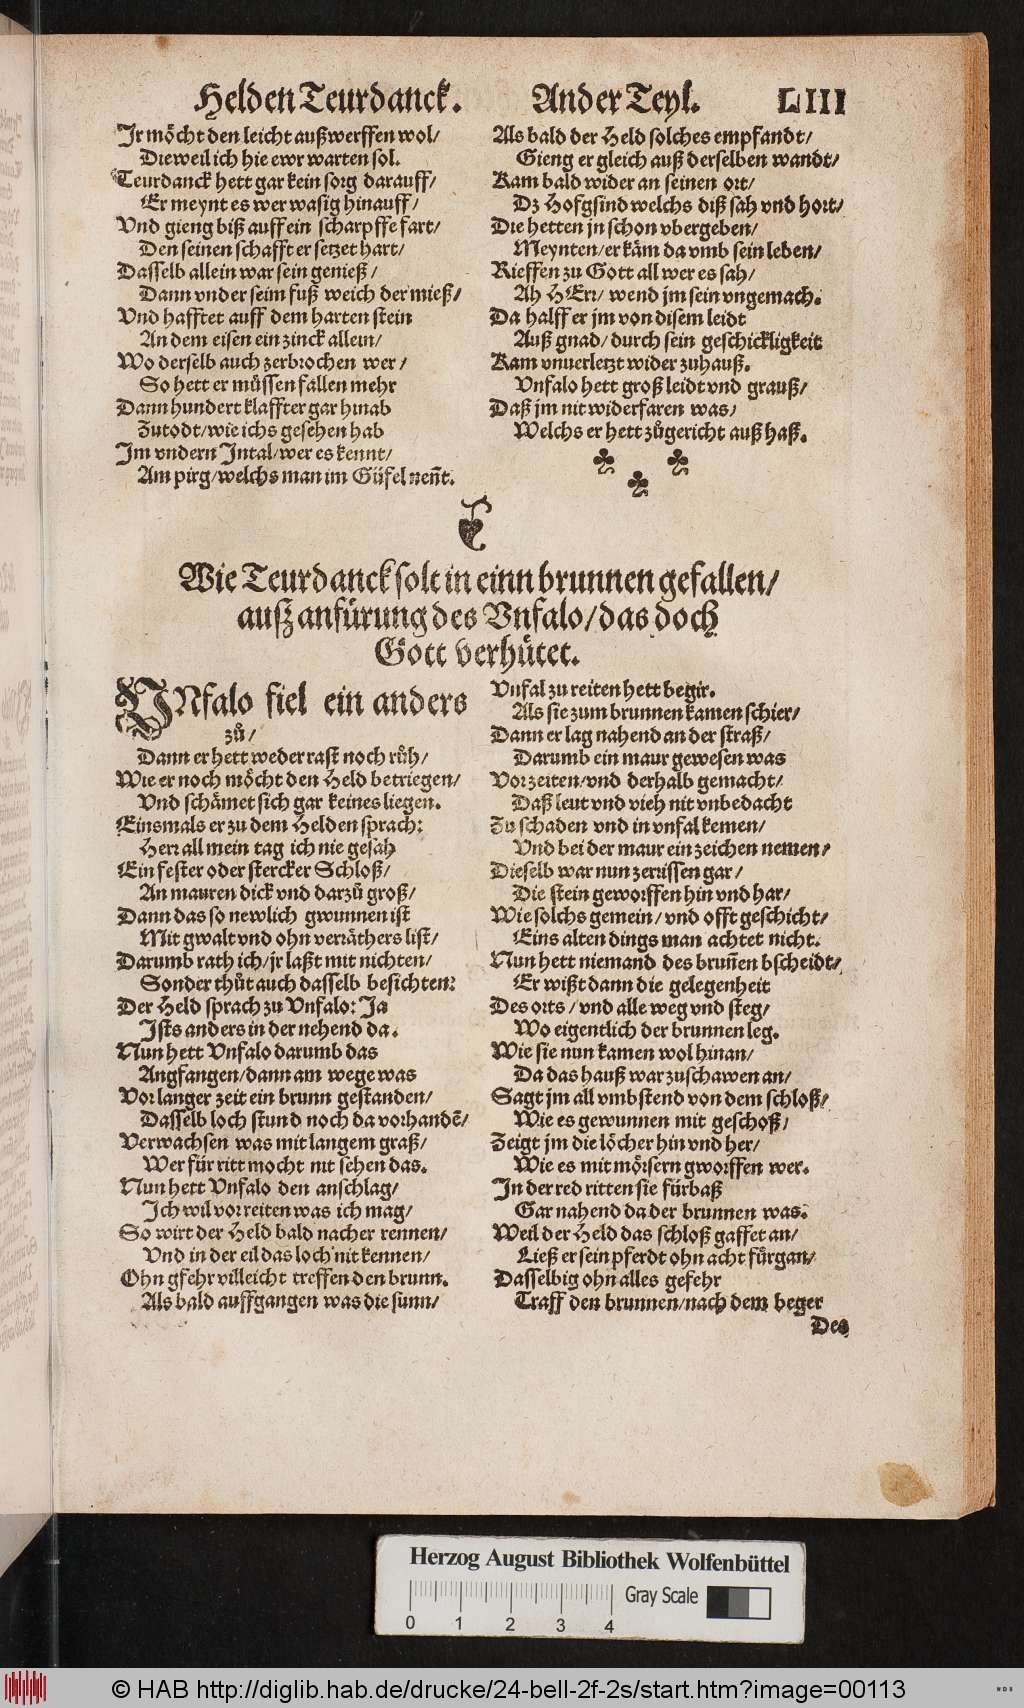 Helden Teurdanck. Ander Teyl. LIII
Jr möcht den leicht außwerffen wol/
Dieweil ich hie ewr warten sol.
Teurdanck hett gar kein sorg darauff/
Er meynt es wer wasig hinauff/
Vnd gieng biß auff ein scharpffe fart/
Den seinen schafft er setzet hart/
Dasselb allein war sein genieß/
Dann vnder seim fuß weich der mieß/
Vnd hafftet auff dem harten stein
An dem eisen ein zinck allein/
Wo derselb auch zerbrochen wer/
So hett er müssen fallen mehr
Dann hundert klaffter gar hinab
Zutodt/wie ichs gesehen hab
Jm vndern Jntal/wer es kennt/
Am pirg/welchs man im Güfel nen̄t.
Als bald der Held solches empfandt/
Gieng er gleich auß derselben wandt/
Kam bald wider an seinen ort/
Dz Hofgsind welchs diß sah vnd hort/
Die hetten jn schon vbergeben/
Meynten/er käm da vmb sein leben/
Rieffen zu Gott all wer es sah/
Ah HErr/ wend jm sein vngemach.
Da halff er jm von disem leidt
Auß gnad/durch sein geschickligkeit
Kam vnuerletzt wider zuhauß.
Vnfalo hett groß leidt vnd grauß/
Daß jm nit widerfaren was/
Welchs er hett zůgericht auß haß.
Wie Teurdanck solt in einn brunnen gefallen/
auß anfürung des Vnfalo/das doch
Gott verhütet.
VNfalo fiel ein anders
zů/
Dann er hett weder rast noch růh/
Wie er noch möcht den Held betriegen/
Vnd schämet sich gar keines liegen.
Einsmals er zu dem Helden sprach:
Herr all mein tag ich nie gesah
Ein fester oder stercker Schloß/
An mauren dick vnd darzů groß/
Dann das so newlich gwunnen ist
Mit gwalt vnd ohn verräthers list/
Darumb rath ich/jr laßt mit nichten/
Sonder thůt auch dasselb besichten:
Der Held sprach zu Vnfalo: Ja
Jsts anders in der nehend da.
Nun hett Vnfalo darumb das
Angfangen/dann am wege was
Vor langer zeit ein brunn gestanden/
Dasselb loch stund noch da vorhandē/
Verwachsen was mit langem graß/
Wer für ritt mocht nit sehen das.
Nun hett Vnfalo den anschlag/
Jch wil vor reiten was ich mag/
So wirt der Held bald nacher rennen/
Vnd in der eil das loch nit kennen/
Ohn gfehr villeicht treffen den brunn.
Als bald auffgangen was die sunn/
Vnfal zu reiten hett begir.
Als sie zum brunnen kamen schier/
Dann er lag nahend an der straß/
Darumb ein maur gewesen was
Vor zeiten/vnd derhalb gemacht/
Daß leut vnd vieh nit vnbedacht
Zu schaden vnd in vnfal kemen/
Vnd bei der maur ein zeichen nemen/
Dieselb war nun zerrissen gar/
Die stein geworffen hin vnd har/
Wie solchs gemein/vnd offt geschicht/
Eins alten dings man achtet nicht.
Nun hett niemand des brun̄en bscheidt/
Er wißt dann die gelegenheit
Des orts/vnd alle weg vnd steg/
Wo eigentlich der brunnen leg.
Wie sie nun kamen wol hinan/
Da das hauß war zuschawen an/
Sagt jm all vmbstend von dem schloß/
Wie es gewunnen mit geschoß/
Zeigt jm die löcher hin vnd her/
Wie es mit mörsern gworffen wer.
Jn der red ritten sie fürbaß
Gar nahend da der brunnen was.
Weil der Held das schloß gaffet an/
Ließ er sein pferdt ohn acht fürgan/
Dasselbig ohn alles gefehr
Traff den brunnen/nach dem beger
Des
Herzog August Bibliothek Wolfenbüttel
Gray Scale
0 1 2 3 4
© HAB http://diglib.hab.de/drucke/24-bell-2f-2s/start.htm?image=00113